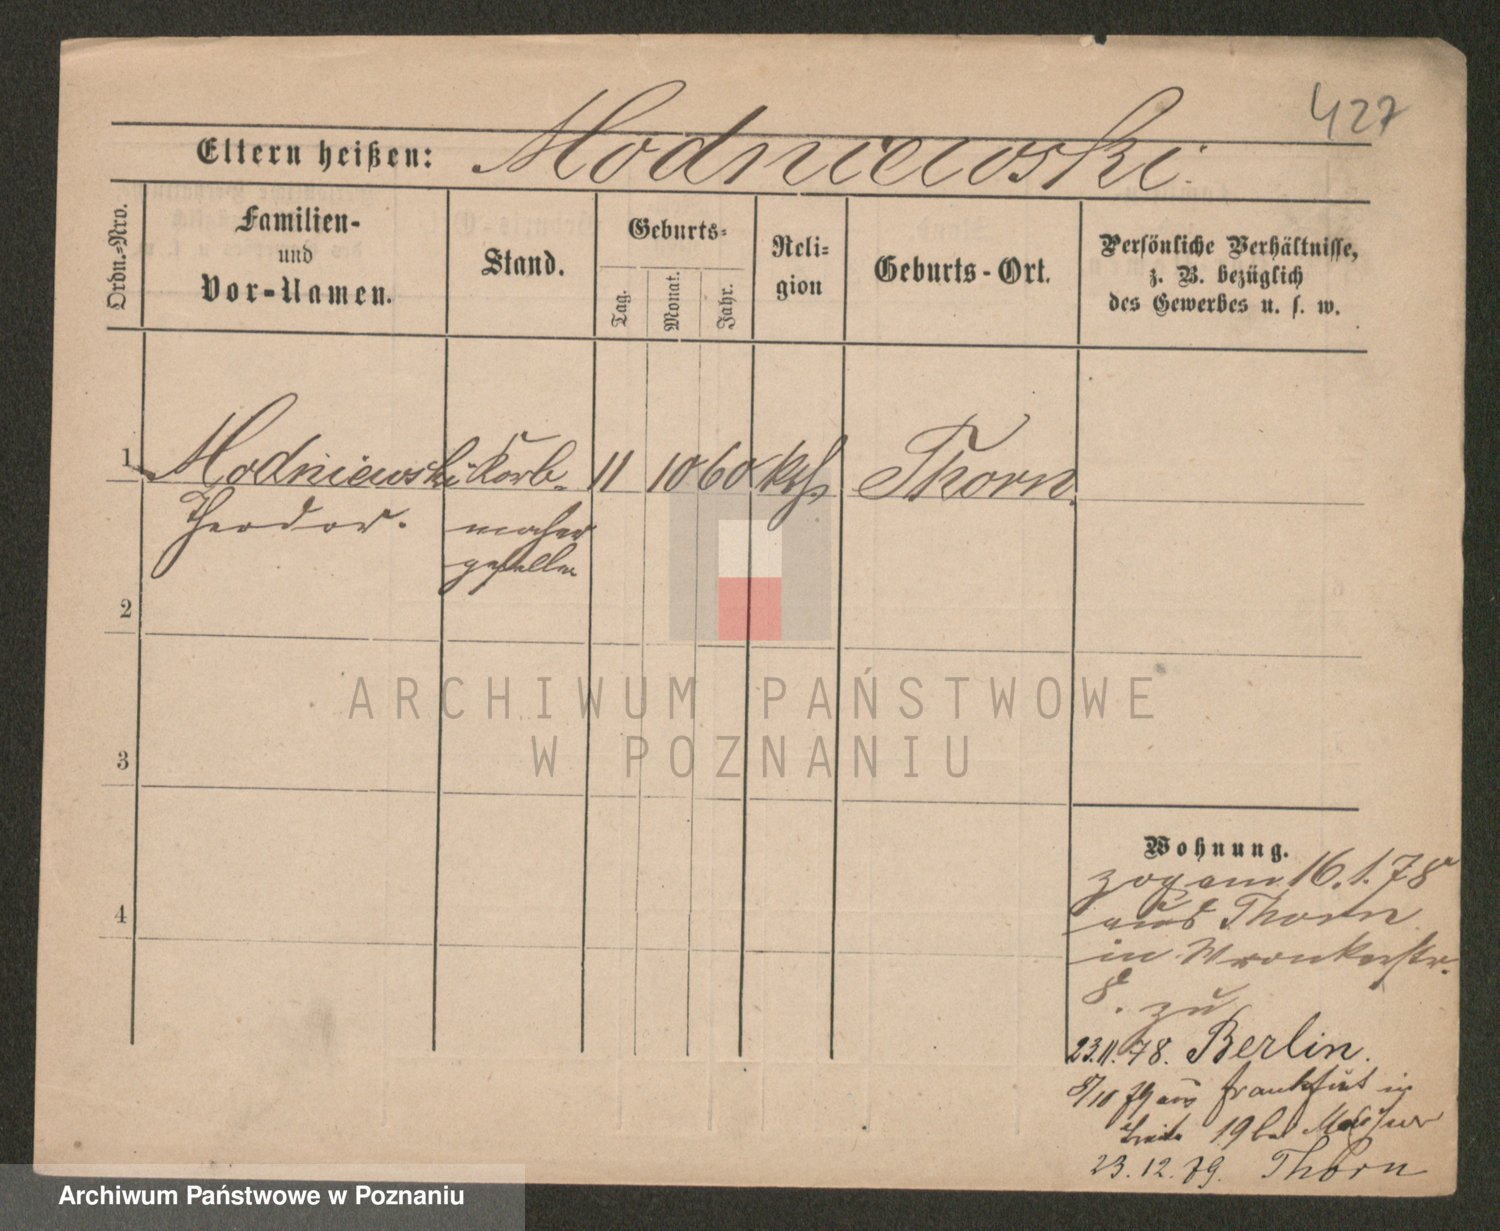 427
Eltern heißen: Modniewski.
Ordn.-Nro.
Familien-
und
Vor-Namen.
Stand.
Geburts-
Tag.
Monat.
Jahr.
Reli-
gion
Geburts-Ort.
Persönliche Verhältnisse,
z. B. bezüglich
des Gewerbes u. s. w.
1 Modniewski Korb- 11 10 60 kth Thorn.
Theodor. macher
geselle
2
3
4
ARCHIWUM PAŃSTWOWE
W POZNANIU
Wohnung.
zog am 16.1.78
aus Thorn
in Wronkerstr.
8. zu
23.11.78. Berlin.
8/10 79 aus Frankfurt in
19 bei
23.12.79. Thorn
Archiwum Państwowe w Poznaniu